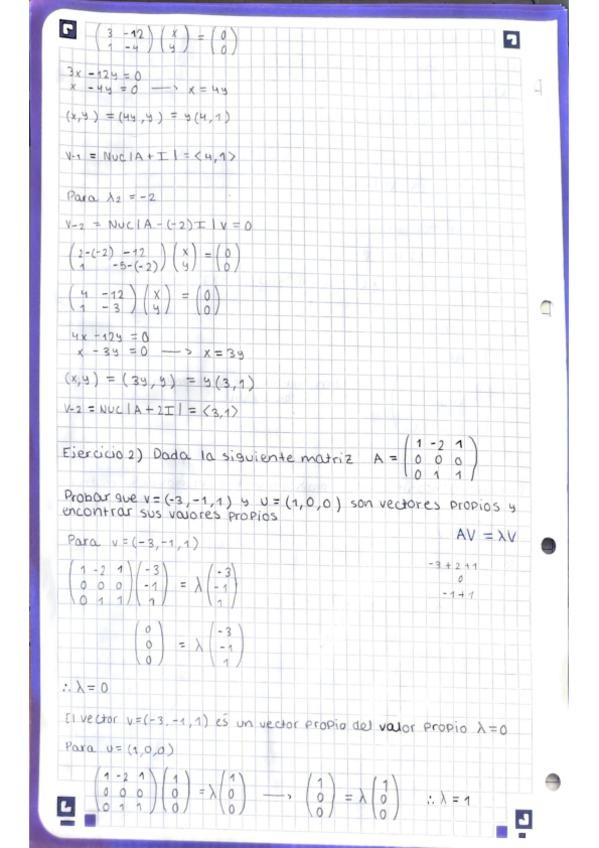 ( 3 -12 ) ( x ) = ( 0 )
( 1 -4 ) ( y ) ( 0 )
3x - 12y = 0
x - 4y = 0 ⟶ x = 4y
(x,y) = (4y, y) = y(4,1)
V-1 = NUC |A + I| = <4,1>
Para λ2 = -2
V-2 = NUC |A - (-2) I| V = 0
( 2-(-2) -12 ) ( x ) = ( 0 )
( 1 -5-(-2) ) ( y ) ( 0 )
( 4 -12 ) ( x ) = ( 0 )
( 1 -3 ) ( y ) ( 0 )
4x - 12y = 0
x - 3y = 0 ⟶ x = 3y
(x,y) = (3y, y) = y(3,1)
V-2 = NUC |A + 2I| = <3,1>
Ejercicio 2) Dada la siguiente matriz A = ( 1 -2 1 )
( 0 0 0 )
( 0 1 1 )
Probar que v = (-3,-1,1) y u = (1,0,0) son vectores propios y
encontrar sus valores propios
AV = λV
Para v = (-3,-1,1)
( 1 -2 1 ) ( -3 ) = λ ( -3 )
( 0 0 0 ) ( -1 ) ( -1 )
( 0 1 1 ) ( 1 ) ( 1 )
-3 + 2 + 1
0
-1 + 1
( 0 ) = λ ( -3 )
( 0 ) ( -1 )
( 0 ) ( 1 )
∴ λ = 0
El vector v = (-3,-1,1) es un vector propio del valor propio λ = 0
Para u = (1,0,0)
( 1 -2 1 ) ( 1 ) = λ ( 1 ) ⟶ ( 1 ) = λ ( 1 ) ∴ λ = 1
( 0 0 0 ) ( 0 ) ( 0 ) ( 0 ) ( 0 )
( 0 1 1 ) ( 0 ) ( 0 ) ( 0 ) ( 0 )